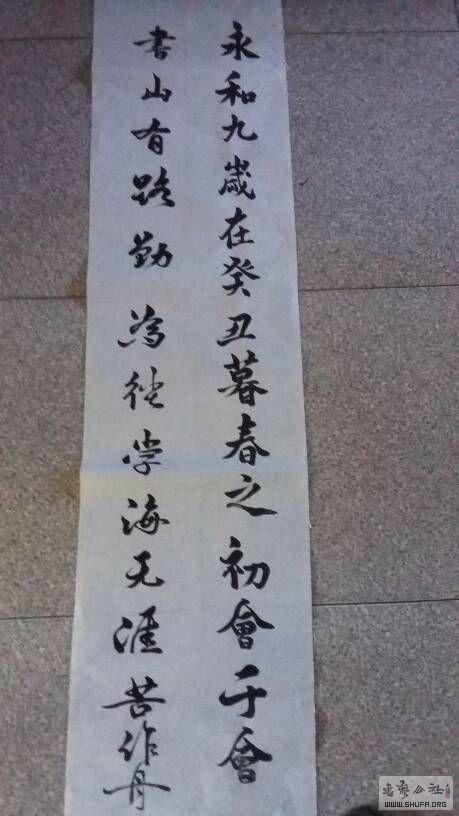 永和九歲在癸丑暮春之初會于會
書山有路勤為径学海无涯苦作舟
書藝公社
WWW.SHUFA.ORG